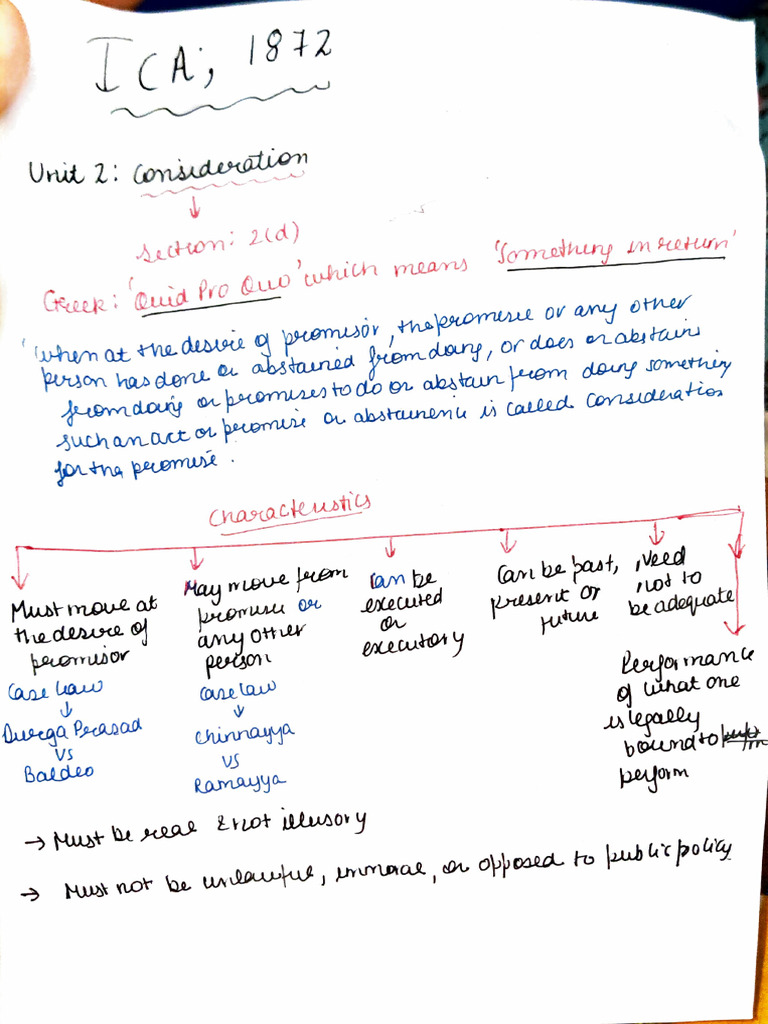 ICA, 1872
Unit 2: Consideration
Section: 2(d)
Greek: 'Quid Pro Quo' which means 'Something in return'
'When at the desire of promisor, the promisee or any other
person has done or abstained from doing, or does or abstains
from doing or promises to do or abstain from doing something
such an act or promise or abstinence is called consideration
for the promise.
Characteristics
Must move at
the desire of
promisor
Case Law
Durga Prasad
VS
Baldeo
May move from
promisee or
any other
person
Case law
Chinnayya
VS
Ramayya
Can be
executed
or
executory
Can be past,
present or
future
Need
not to
be adequate
Performance
of what one
is legally
bound to
perform
→ Must be real & not illusory
→ Must not be unlawful, immoral, or opposed to public policy